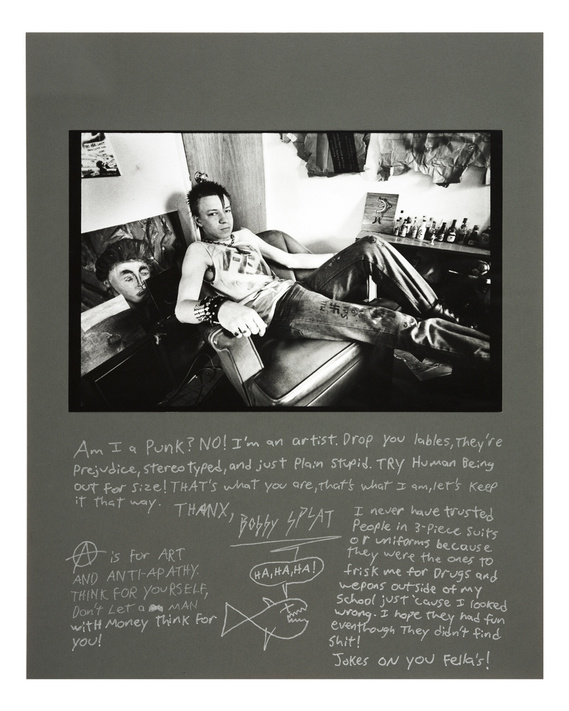 Am I a Punk? NO! I'm an artist. Drop you lables, They're
Prejudice, stereotyped, and just Plain Stupid. TRY Human Being
out for Size! THAT'S what you are, that's what I am, let's keep
it that way. THANX, BOBBY SPLAT
A is for ART
AND ANTI-APATHY.
THINK FOR YOURSELF,
Don't Let a MAN
with Money Think For
you!
HA, HA, HA!
I never have trusted
People in 3-Piece Suits
or uniforms because
they were the ones to
frisk me for Drugs and
wepons outside of my
School just 'cause I looked
wrong. I hope they had fun
eventhough They didn't find
Shit!
Jokes ON you Fella's!